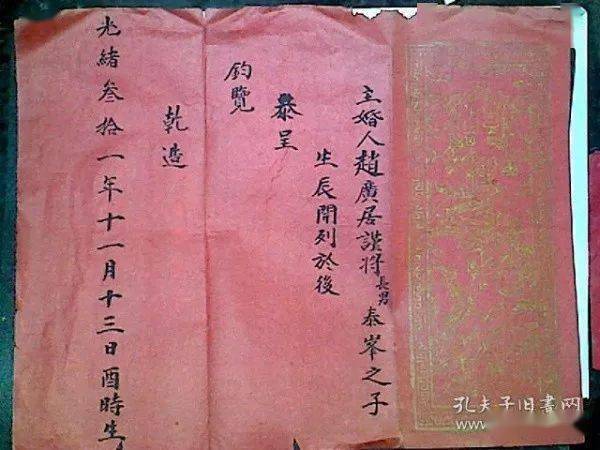 主婚人趙廣居謹將長男泰峯之子
生辰開列於後
恭呈
鈞覽
乾造
光緒叁拾一年十一月十三日酉時生
孔夫子旧书网